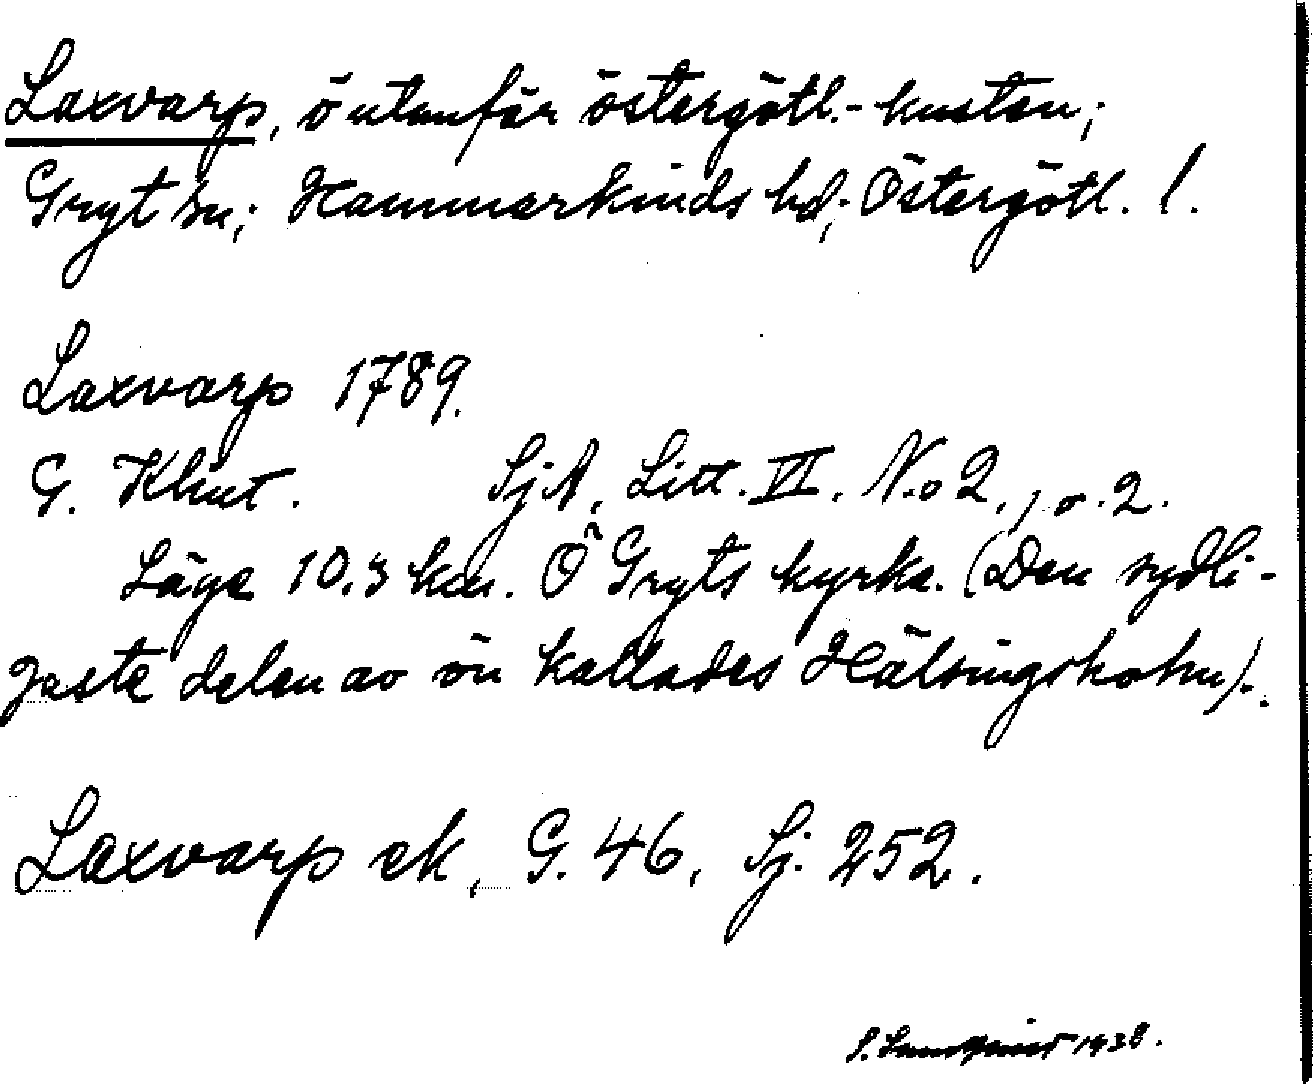 Laxvarp, ö utanför östergötl.-kusten;
Gryt sn; Hammarkinds hd; Östergötl. l.
Laxvarp 1789.
G. Klint. SjA, Litt. VI. N.o 2., 1 o. 2.
Läge 10.3 km. Ö Gryts kyrka. (Den sydli-
gaste delen av ön kallades Hälsingsholm).
Laxvarp ek, G. 46, Sj. 252.
1938.